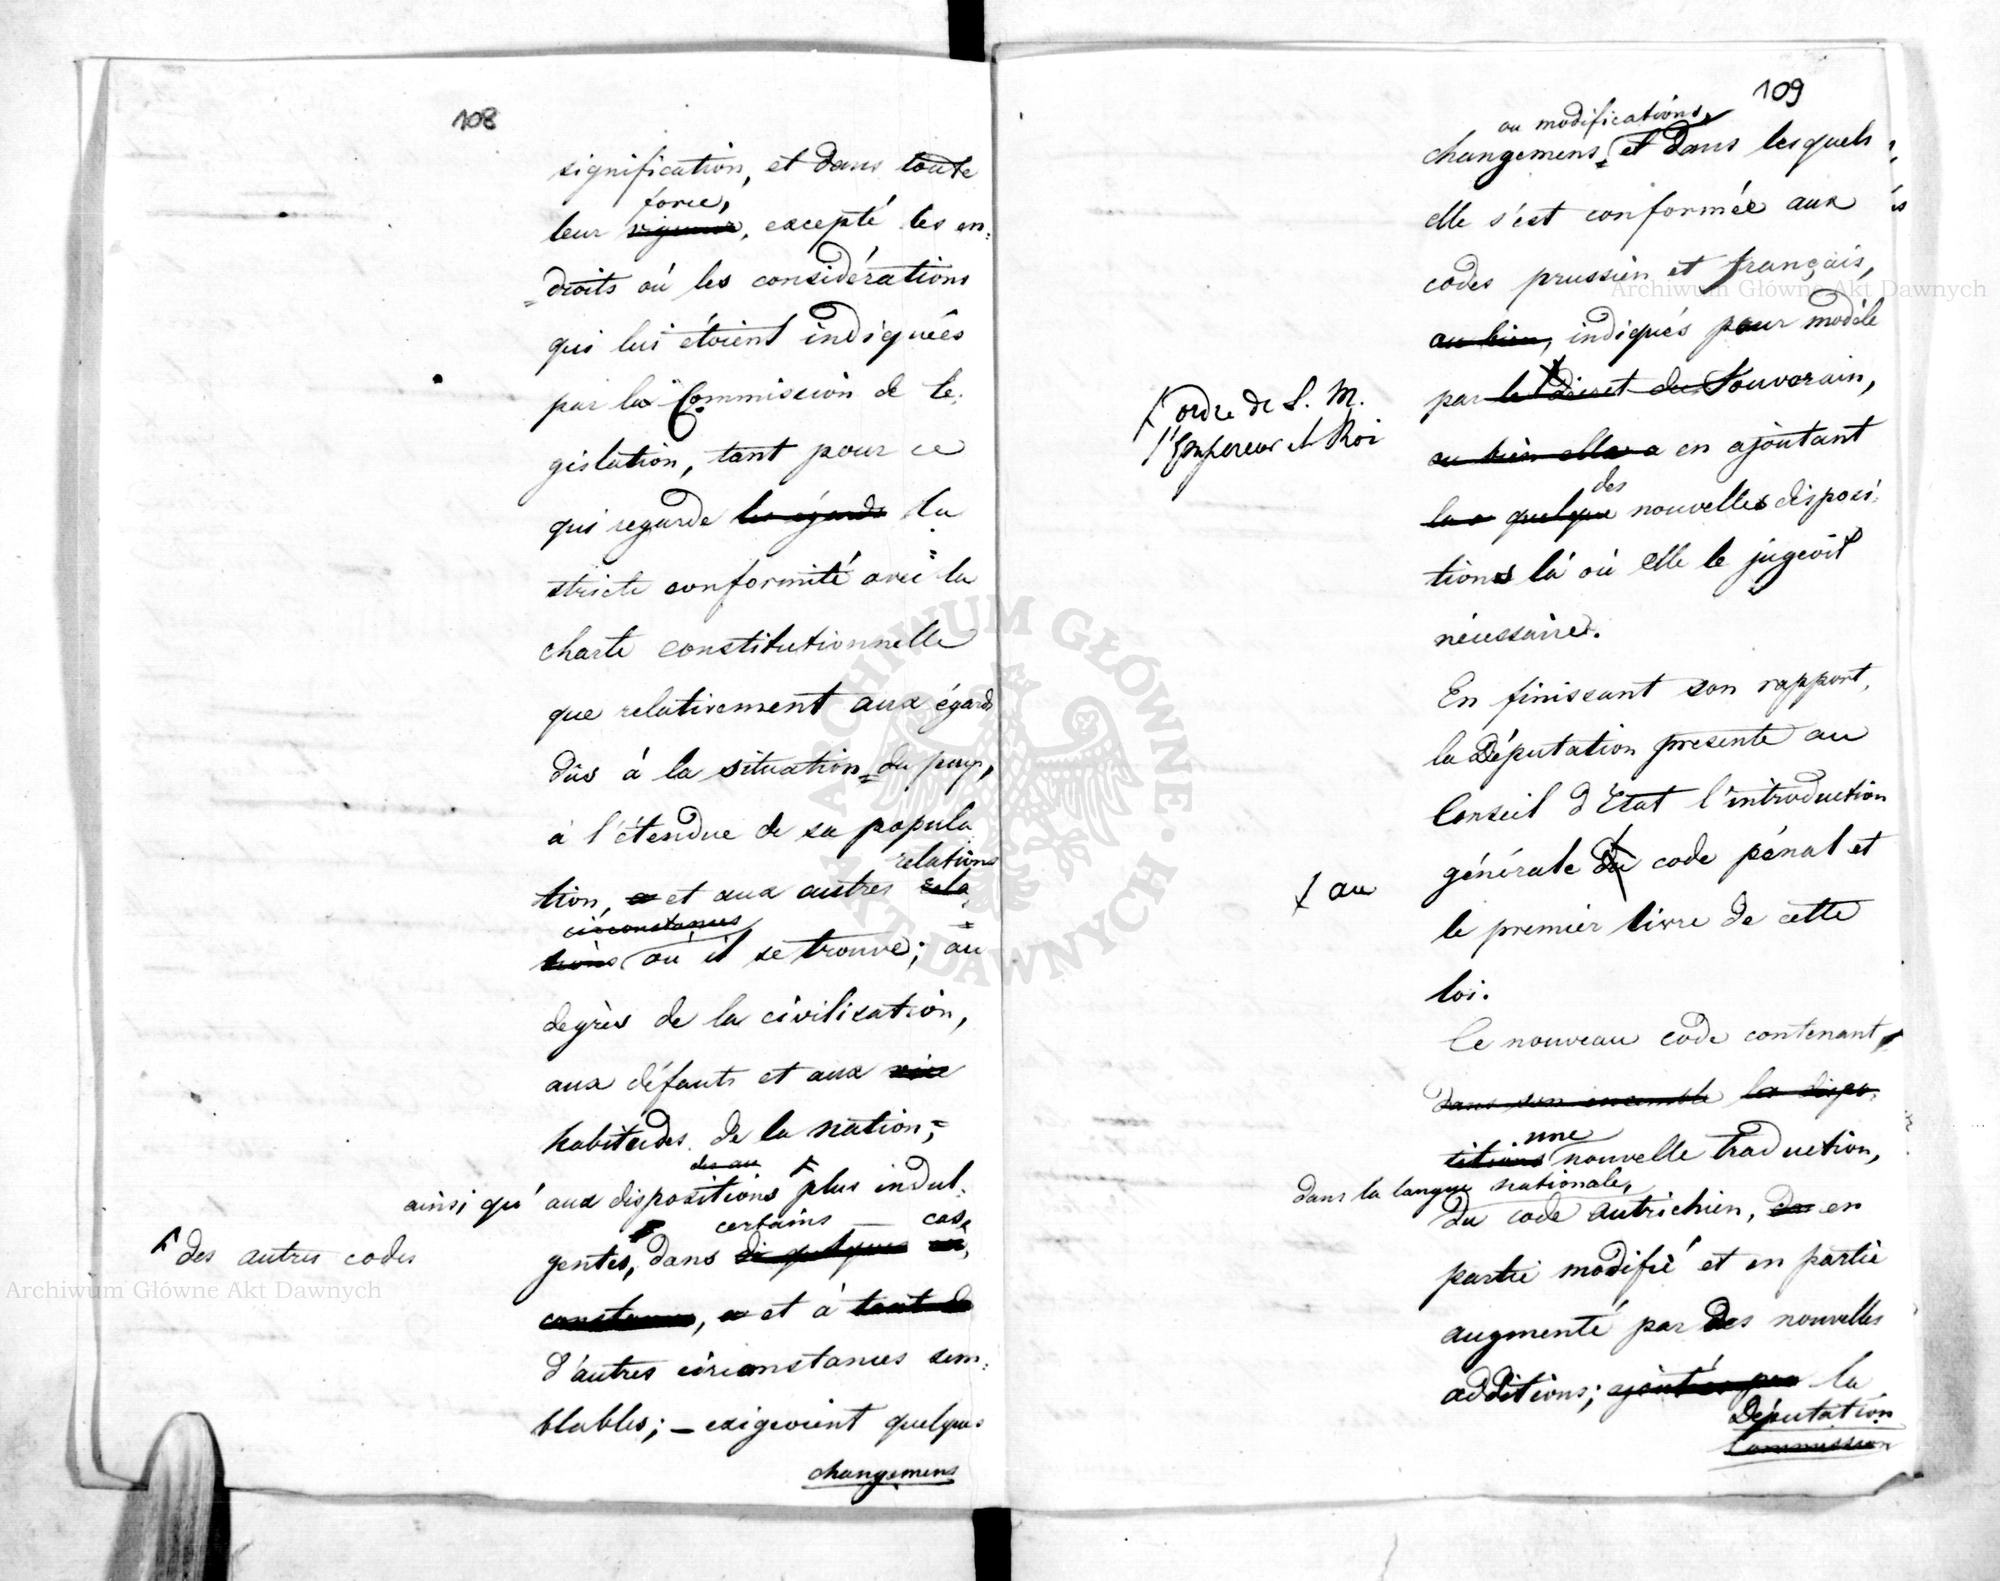 108
signification, et dans toute
force,
leur vigueur, excepté les en=
=droits où les considérations
qui lui étoient indiquées
par la Commission de lé=
gislation, tant pour ce
qui regarde les égards la
stricte conformité avec la
charte constitutionnelle
que relativement aux égards
dûs à la situation du pays,
à l'étendue de sa popula
relations
tion, et aux autres rela
circonstances
tions où il se trouve; au
degrès de la civilisation,
aux défauts et aux
habitudes de la nation;
ainsi qu' aux dispositions plus indul=
certains cas,
des autres codes
gentes, dans de quelques
et à tout
d'autres circonstances sem=
blables; – exigeoient quelques
changemens
109
ou modifications,
changemens et dans lesquels
elle s'est conformée aux
codes prussien et français,
ou bien, indiqués pour modèle
par le décret du Souverain,
ordre de S. M.
l'Empereur et Roi
ou bien elle a en ajoutant
des
quelque nouvelles disposi=
tions là où elle le jugeoit
nécessaire.
En finissant son rapport,
la Députation presente au
Conseil d'Etat l'introduction
générale du code pénal et
au
le premier livre de cette
loi.
Ce nouveau code contenant,
dans son ensemble les dispo=
une
sitions nouvelle traduction,
dans la langue nationale,
du code autrichien, en
partie modifié et en partie
augmenté par des nouvelles
additions; ajoutées par la
Députation
Commission
Archiwum Główne Akt Dawnych
Archiwum Główne Akt Dawnych
ARCHIWUM GŁÓWNE AKT DAWNYCH